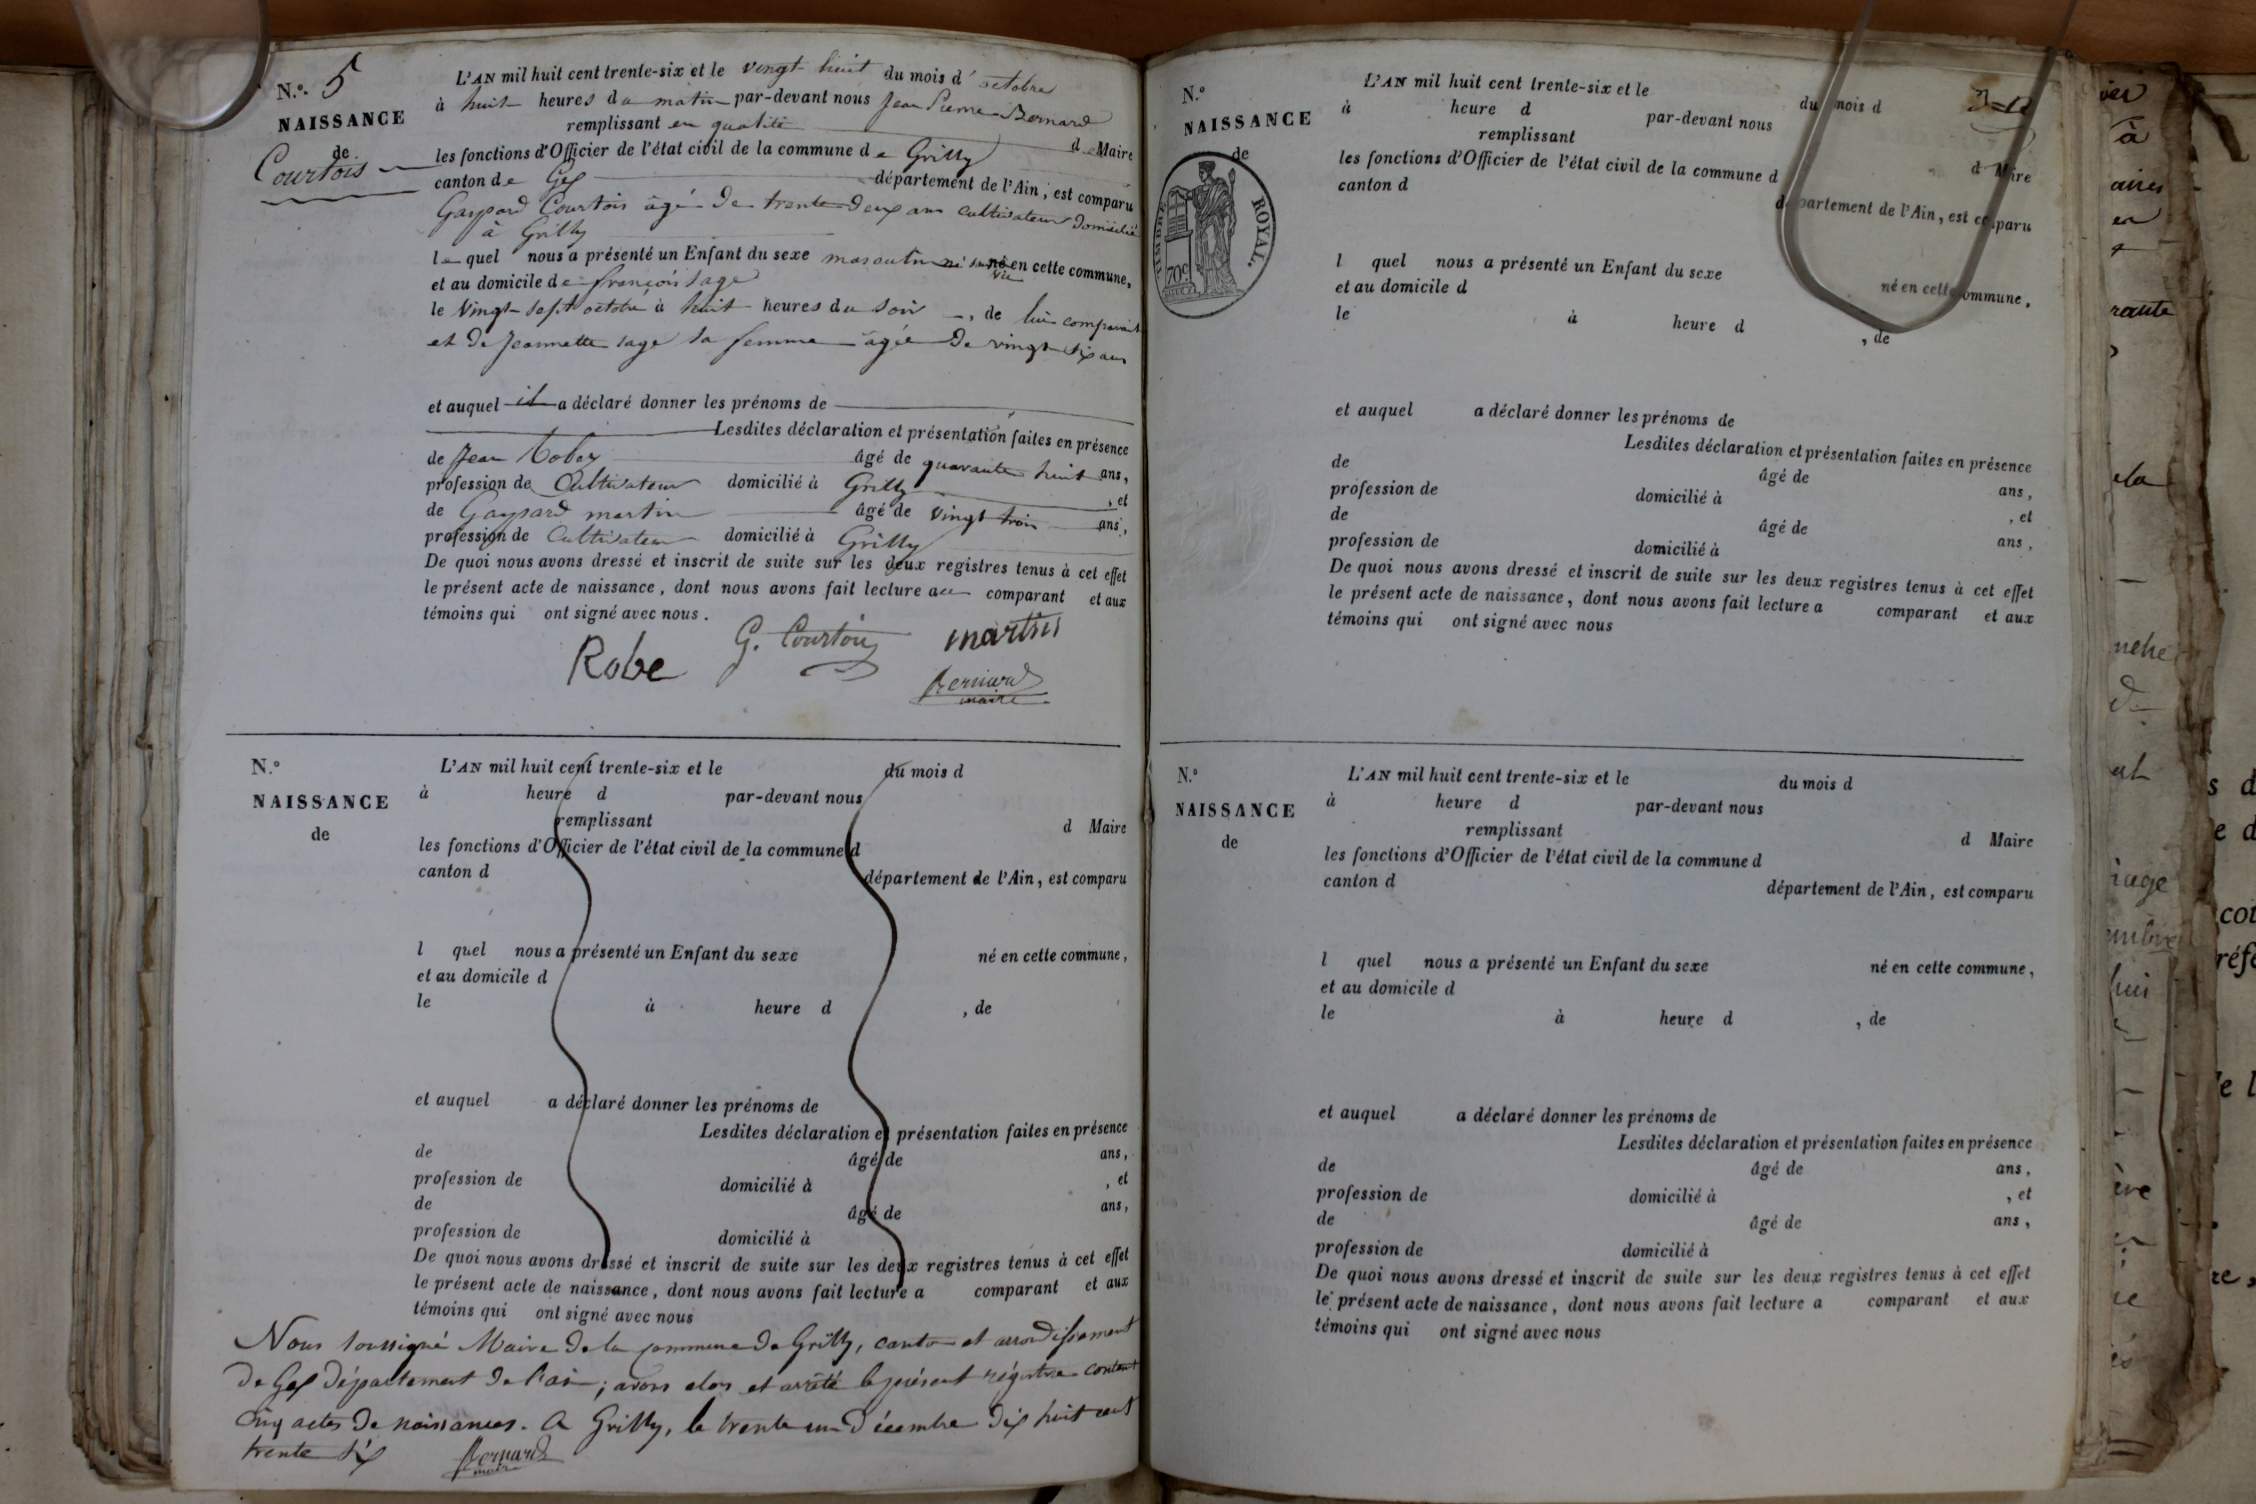 N.º 5
NAISSANCE
de
Courtois
L'AN mil huit cent trente-six et le vingt huit du mois d' octobre
à huit heures du matin par-devant nous Jean Pierre Bernard
remplissant en qualité de Maire
les fonctions d'Officier de l'état civil de la commune de Grilly
canton de Gex département de l'Ain, est comparu
Gaspard Courtois âgé de trente deux ans cultivateur domicilié
à Grilly
lequel nous a présenté un Enfant du sexe masculin né sans vie en cette commune,
et au domicile de françois sage
le vingt-sept octobre à huit heures du soir, de lui comparant
et de Jeannette sage sa femme âgée de vingt six ans
et auquel il a déclaré donner les prénoms de
Lesdites déclaration et présentation faites en présence
de Jean Robez âgé de quarante huit ans,
profession de Cultivateur domicilié à Grilly, et
de Gaspard martin âgé de vingt trois ans,
profession de Cultivateur domicilié à Grilly
De quoi nous avons dressé et inscrit de suite sur les deux registres tenus à cet effet
le présent acte de naissance, dont nous avons fait lecture au comparant et aux
témoins qui ont signé avec nous.
Robe G. Courtois martin
Bernard
maire
N.º
NAISSANCE
de
L'AN mil huit cent trente-six et le du mois d
à heure d par-devant nous
remplissant d Maire
les fonctions d'Officier de l'état civil de la commune d
canton d département de l'Ain, est comparu
l quel nous a présenté un Enfant du sexe né en cette commune,
et au domicile d
le à heure d , de
et auquel a déclaré donner les prénoms de
Lesdites déclaration et présentation faites en présence
de âgé de ans,
profession de domicilié à , et
de âgé de ans,
profession de domicilié à
De quoi nous avons dressé et inscrit de suite sur les deux registres tenus à cet effet
le présent acte de naissance, dont nous avons fait lecture a comparant et aux
témoins qui ont signé avec nous
Nous soussigné Maire de la commune de Grilly, canton et arrondissement
de Gex département de l'ain; avons clos et arrêté le présent régistre contenant
cinq actes de naissances. A Grilly, le trente un Décembre dix huit cent
trente six Bernard
maire
N.º
NAISSANCE
de
TIMBRE ROYAL.
70c
L'AN mil huit cent trente-six et le du mois d
à heure d par-devant nous
remplissant d Maire
les fonctions d'Officier de l'état civil de la commune d
canton d département de l'Ain, est comparu
l quel nous a présenté un Enfant du sexe né en cette commune,
et au domicile d
le à heure d , de
et auquel a déclaré donner les prénoms de
Lesdites déclaration et présentation faites en présence
de âgé de ans,
profession de domicilié à , et
de âgé de ans,
profession de domicilié à
De quoi nous avons dressé et inscrit de suite sur les deux registres tenus à cet effet
le présent acte de naissance, dont nous avons fait lecture a comparant et aux
témoins qui ont signé avec nous
N.º
NAISSANCE
de
L'AN mil huit cent trente-six et le du mois d
à heure d par-devant nous
remplissant d Maire
les fonctions d'Officier de l'état civil de la commune d
canton d département de l'Ain, est comparu
l quel nous a présenté un Enfant du sexe né en cette commune,
et au domicile d
le à heure d , de
et auquel a déclaré donner les prénoms de
Lesdites déclaration et présentation faites en présence
de âgé de ans,
profession de domicilié à , et
de âgé de ans,
profession de domicilié à
De quoi nous avons dressé et inscrit de suite sur les deux registres tenus à cet effet
le présent acte de naissance, dont nous avons fait lecture a comparant et aux
témoins qui ont signé avec nous